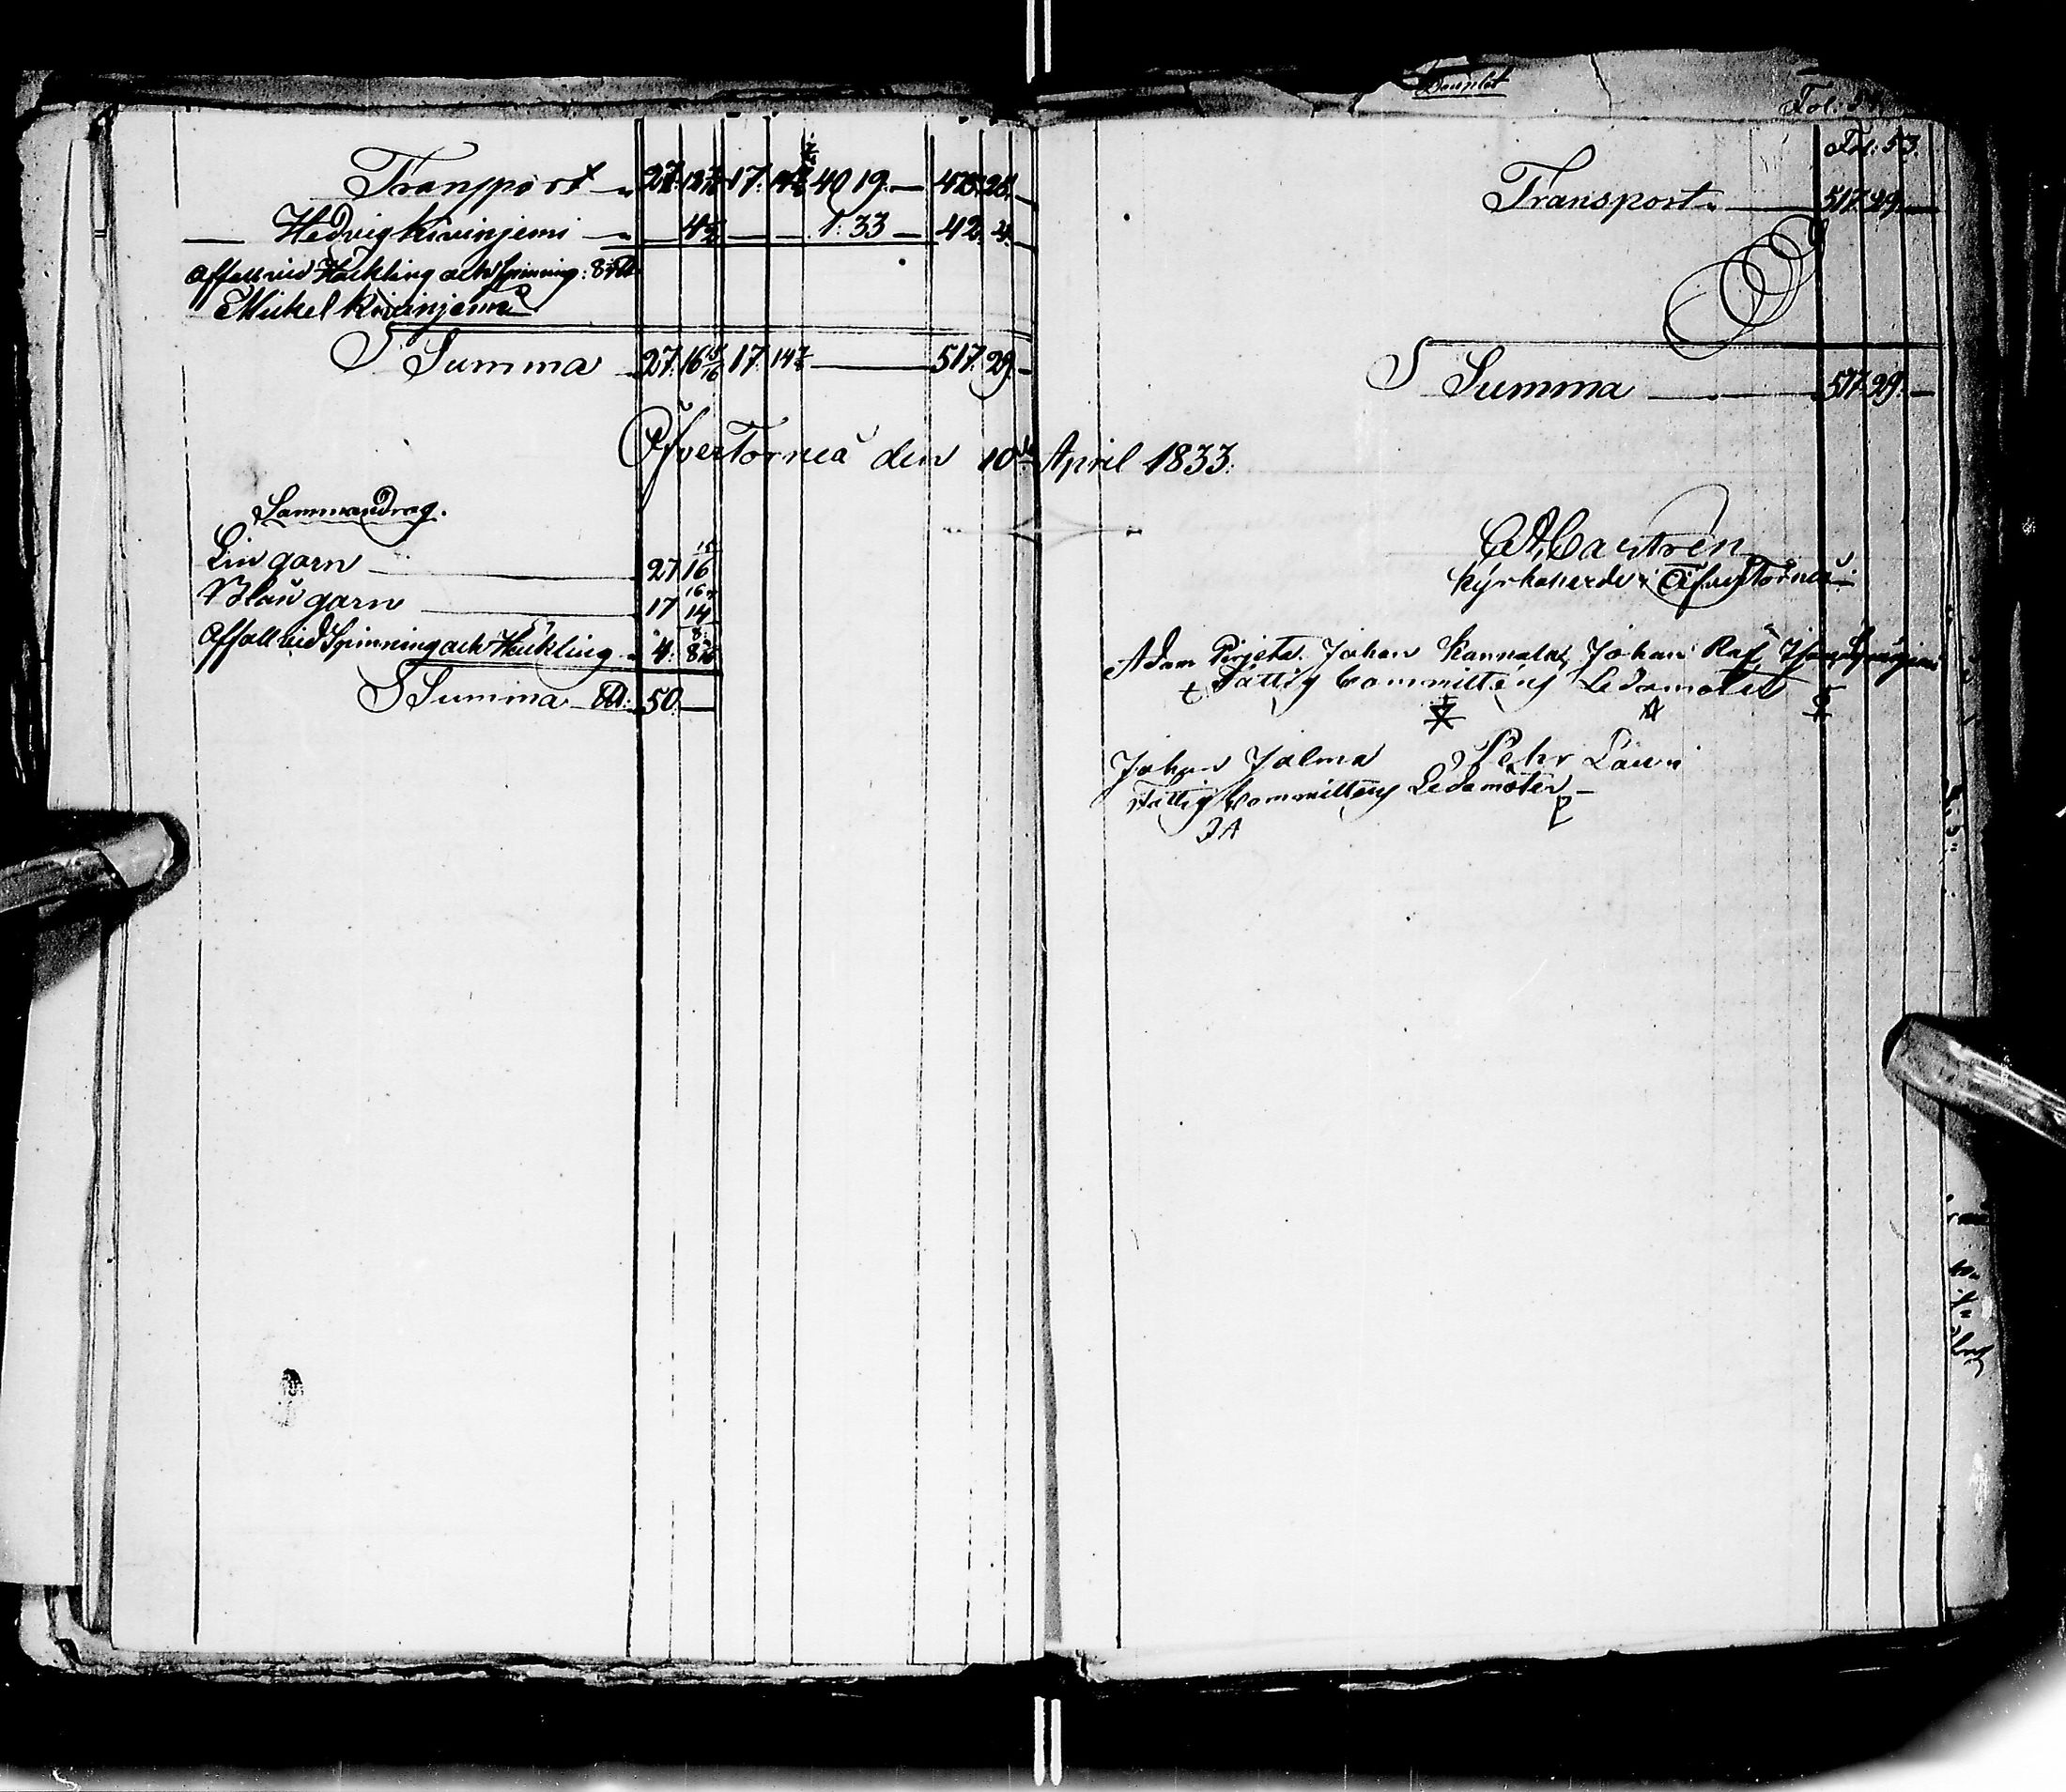 Transport 27. 12 17. 14 40 19. — 475. 25. —
— Hedvig Kivinjemi — 4 — — 1: 33 — 42. 4. —
Affall vid Häckling och Spinning: 8
Mickel Kivinjemi
S Summa 27. 16 15/16 17. 14 — 517. 29. —
ÖfverTorneå den 10de April 1833.
Sammandrag.
Lin garn — 27 16 15/16
Blåu garn — 17 14
Affall vid Spinning och Häckling 4. 8
S Summa 50. —
Fol: 53.
Transport — 517. 29. —
S Summa — 517. 29. —
Castrén
Kyrkoherde i ÖfverTorneå
Adam Pirjeta Johan Kannala Johan
Fattig Committens Ledamöter
Johan Jolma Pehr Lauri
Fattig Committens Ledamöter
JA